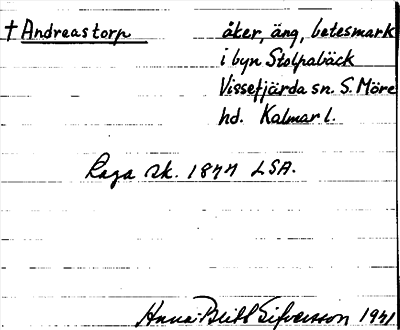 † Andreastorp åker, äng, betesmark
i byn Stolpabäck
Vissefjärda sn. S. Möre
hd. Kalmar l.
Laga sk. 1877 LSA.
Anna-Britt Sifvertsson 1941